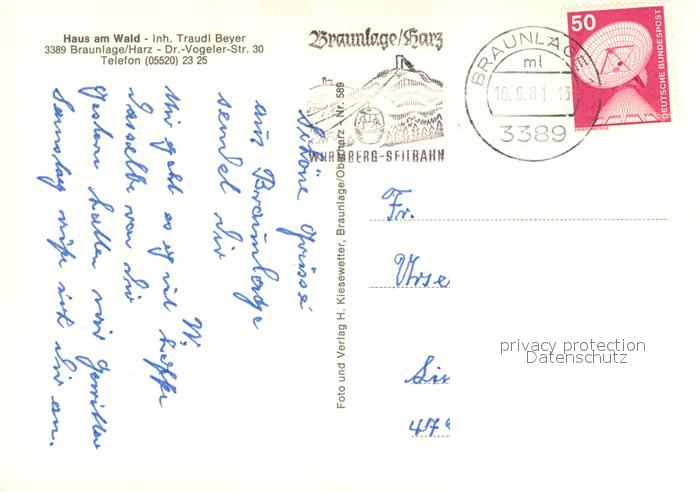 Haus am Wald - Inh. Traudl Beyer
3389 Braunlage/Harz - Dr.-Vogeler-Str. 30
Telefon (05520) 23 25
Schöne Grüsse
aus Braunlage
sendet dir
W.
Mir geht es gut hoffe
dasselbe von dir
Gestern hatten wir Gewitter
Samstag rufe ich dir an.
Foto und Verlag H. Kiesewetter, Braunlage/Oberharz - Nr. 589
Braunlage/Harz
WURMBERG-SEILBAHN
BRAUNLAGE
ml
16.6.81-13
3389
50
DEUTSCHE BUNDESPOST
Fr.
Urse
privacy protection
Datenschutz